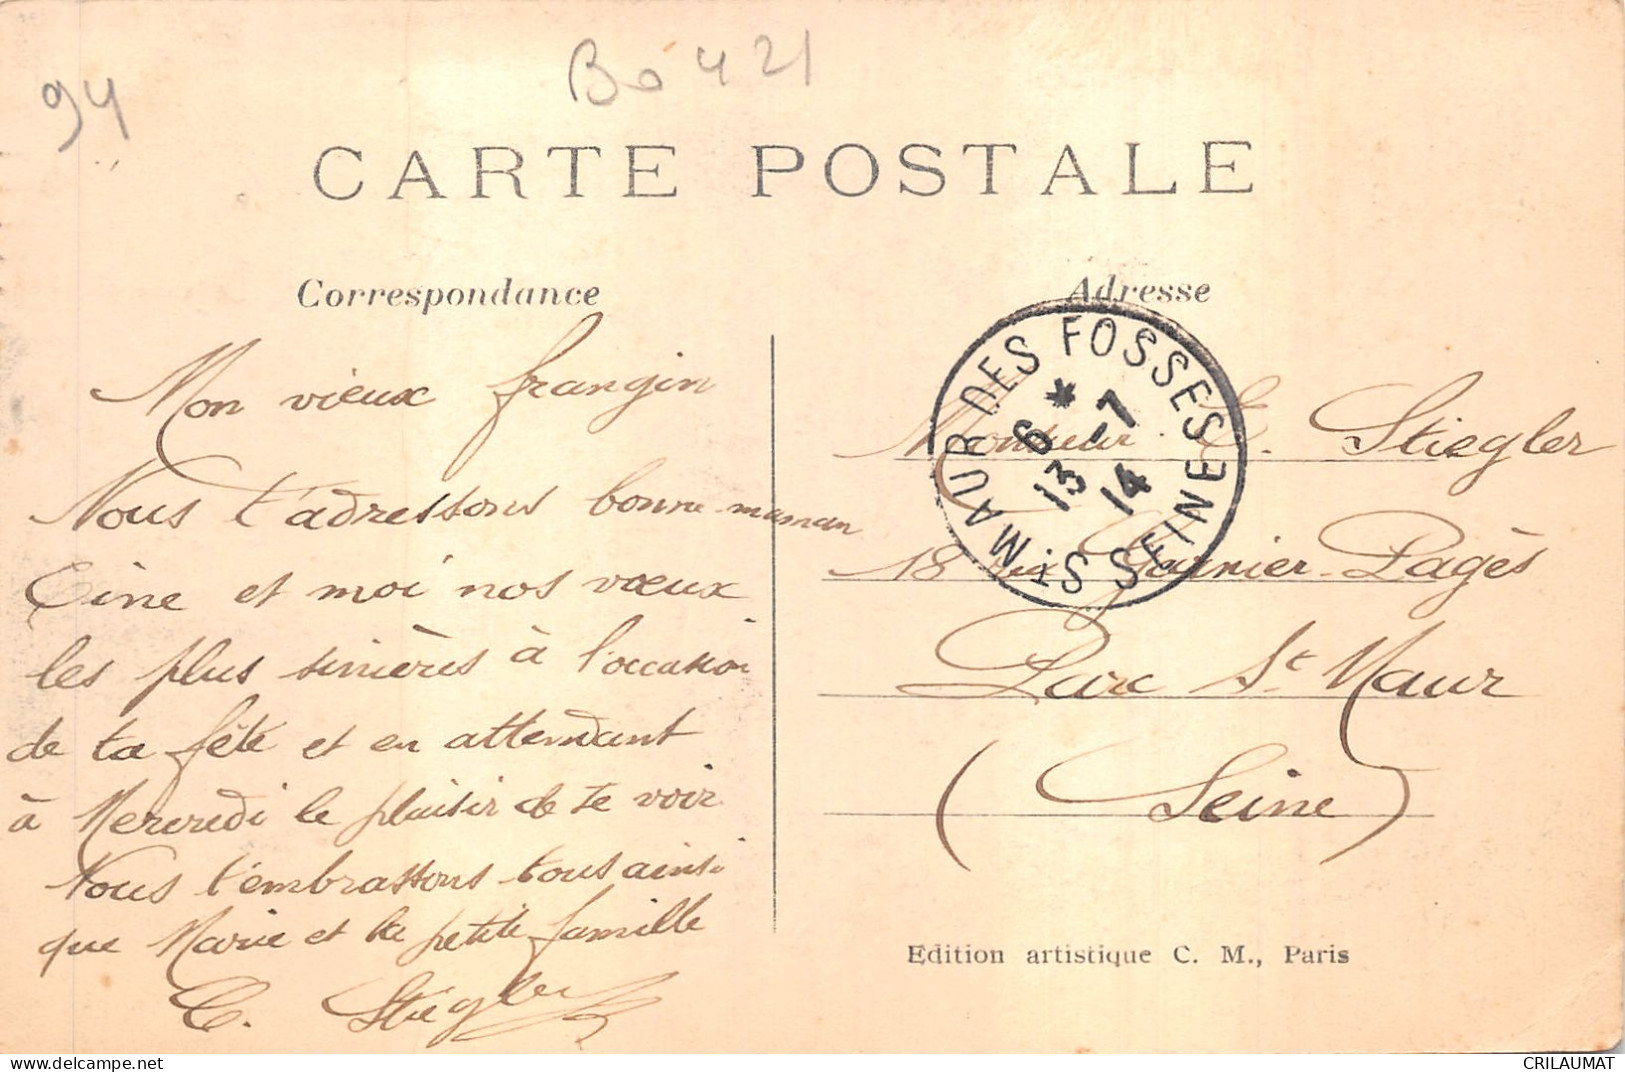 94
Bo 421
CARTE POSTALE
Correspondance
Mon vieux frangin
Nous t'adressons bonne-maman
Cine et moi nos vœux
les plus sincères à l'occasion
de ta fête et en attendant
à Mercredi le plaisir de te voir
Nous t'embrassons tous ainsi
que Marie et la petite famille
E. Stiegler
Adresse
Monsieur E. Stiegler
18 rue Garnier-Pagès
Parc St Maur
(Seine)
ST MAUR DES FOSSES SEINE
6 * 13 -7 14
Edition artistique C. M., Paris
delcampe.net
CRILAUMAT